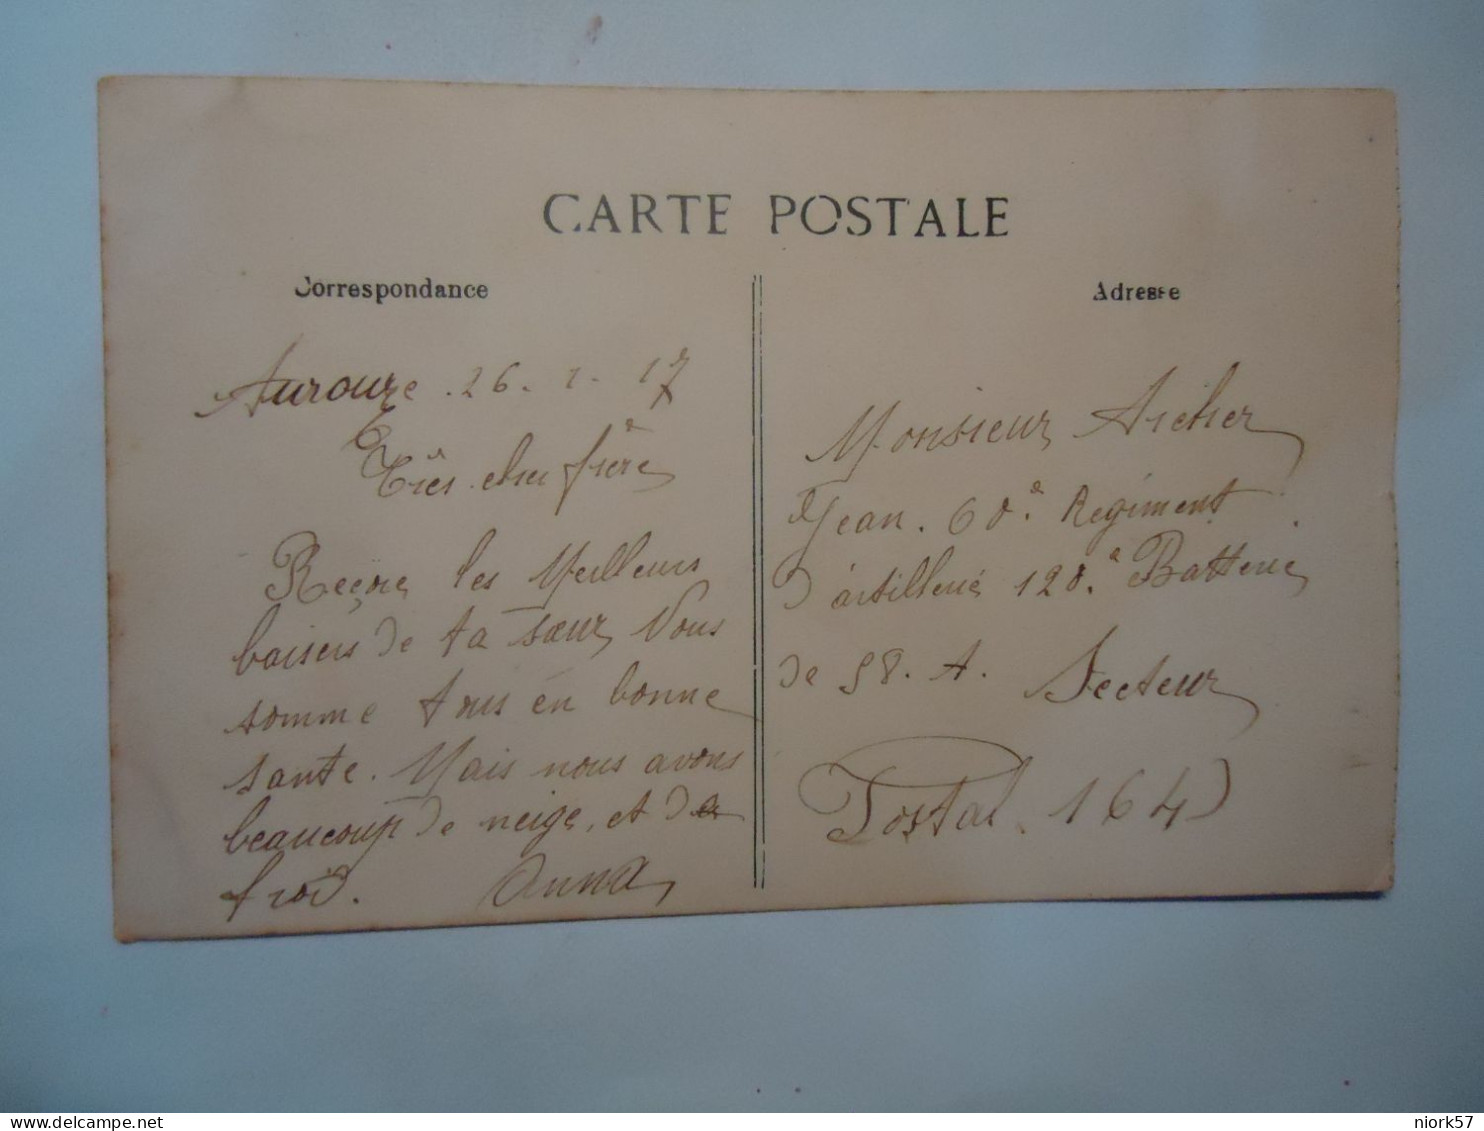 CARTE POSTALE
Correspondance
Adresse
Aurouze . 26 . 1 . 17
Très cher frère
Reçois les Meilleurs
baisers de ta sœur Nous
somme tous en bonne
sante. Mais nous avons
beaucoup de neige, et de
froid. Anna
Monsieur Archer
Jean. 60e Regiment
D'artillerie 120.e Batterie
de 58. A. Secteur
Postal. 164
niork57